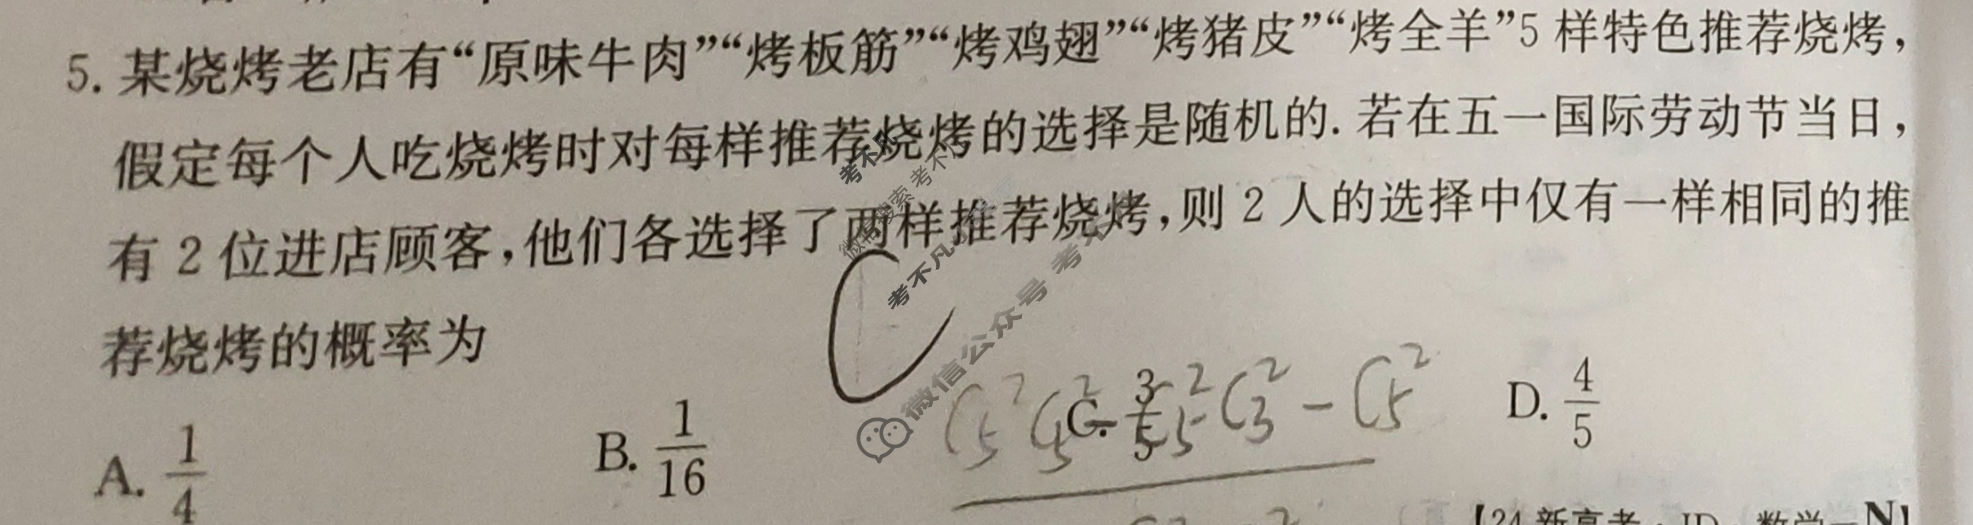 5. 某烧烤老店有“原味牛肉”“烤板筋”“烤鸡翅”“烤猪皮”“烤全羊”5 样特色推荐烧烤,
假定每个人吃烧烤时对每样推荐烧烤的选择是随机的. 若在五一国际劳动节当日,
有 2 位进店顾客,他们各选择了两样推荐烧烤,则 2 人的选择中仅有一样相同的推
荐烧烤的概率为
C
A. 1/4
B. 1/16
C. 3/5
D. 4/5
C₅²C₅² - C₅²C₃² - C₅²
微信公众号
考不凡
【24 新高考·JD·数学—N】